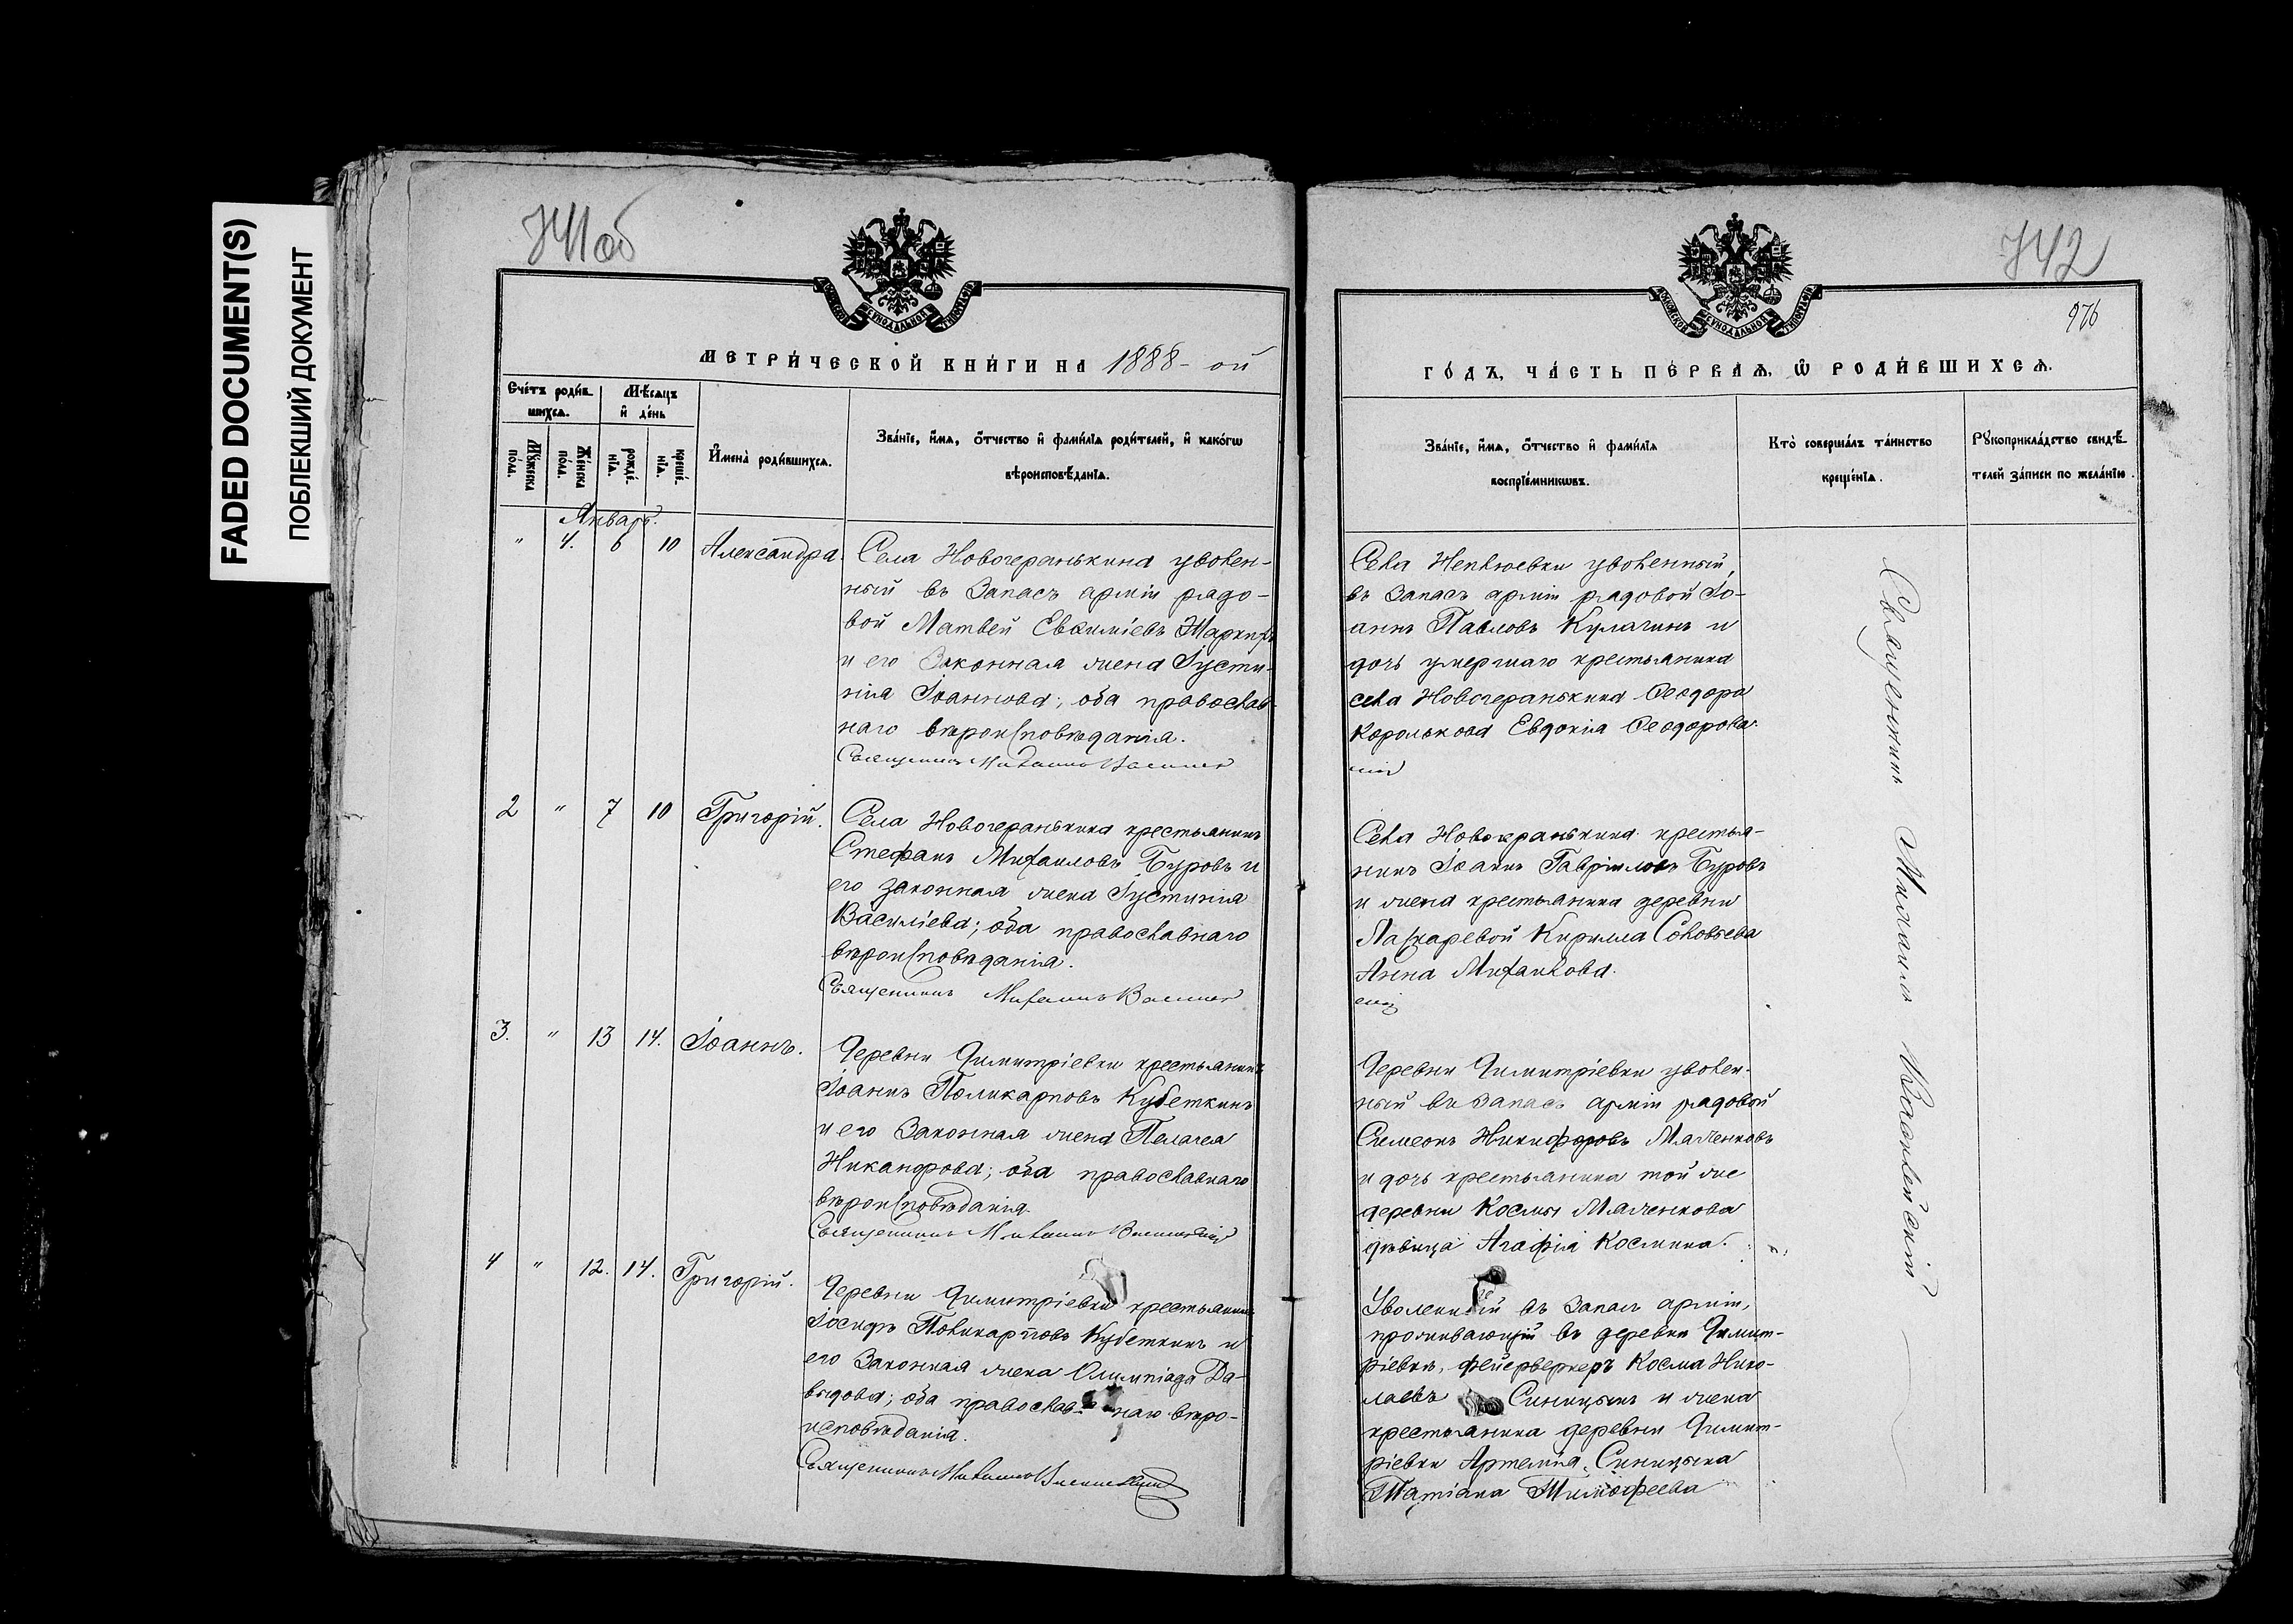 FADED DOCUMENT(S)
ПОБЛЕКШИЙ ДОКУМЕНТ
741об
МЕТРИ́ЧЕСКОЙ КНИ́ГИ НА 1888-ой
Сче́тъ роди́в-
шихсѧ.
Мѣ́сяцъ
и де́нь
Мꙋ́жеска
по́ла.
Же́нска
по́ла.
рожде́-
нїѧ.
креще́-
нїѧ.
Имена̀ роди́вшихсѧ.
Зва́нїе, и́мѧ, о́тчество и фами́лїѧ роди́телей, и како́гѡ
вѣроисповѣ́данїѧ.
Январь.
" 4. 6 10 Александра.
Села Новогеранькина уволен-
ный въ Запасъ арміи рядо-
вой Матвей Евфиміевъ
и его Законная жена Іусти-
нія Іоаннова; оба православ-
наго вѣроисповѣданія.
Священникъ Михаилъ
2 " 7 10 Григорій.
Села Новогеранькина крестьянинъ
Стефанъ Михаиловъ Буровъ и
его законная жена Іустинія
Василіева; оба православнаго
вѣроисповѣданія.
Священникъ Михаилъ
3. " 13 14. Іоаннъ.
Деревни Димитріевки крестьянинъ
Іоаннъ Поликарповъ Кубеткинъ
и его Законная жена Пелагея
Никандрова; оба православнаго
вѣроисповѣданія.
Священникъ Михаилъ
4 " 12. 14. Григорій.
Деревни Димитріевки крестьянинъ
Іосифъ Поликарповъ Кубеткинъ и
его Законная жена Олимпіада Да-
выдова; оба православ- наго вѣро-
исповѣданія.
Священникъ Михаилъ
742
976
ГО́ДЪ, ЧА́СТЬ ПЕ́РВАѦ, Ѿ РОДИ́ВШИХСѦ.
Зва́нїе, и́мѧ, о́тчество и фами́лїѧ
воспрїе́мникѡвъ.
Кто̀ соверша́лъ та́инство
креще́нїѧ.
Рꙋкоприкла́дство свидѣ́-
телей за́писи по жела́нїю.
Села Неплюевки уволенный
въ Запасъ арміи рядовой Іо-
аннъ Павловъ Кулагинъ и
дочь умершаго крестьянина
села Новогеранькина Ѳеодора
Королькова Евдокія Ѳеодорова.
Села Новогеранькина крестья-
нинъ Іоаннъ Гавріиловъ Буровъ
и жена крестьянина деревни
Ласкаревой Кирилла Соловьева
Анна Михаилова.
Деревни Димитріевки уволен-
ный въ Запасъ арміи рядовой
Симеонъ Никифоровъ Маленковъ
и дочь крестьянина той же
деревни Космы Маленкова
дѣвица Агафія Космина.
Уволенный въ Запасъ арміи,
проживающій въ деревни Димит-
ріевки, фейерверкеръ Косма Нико-
лаевъ Синицынъ и жена
крестьянина деревни Димит-
ріевки Артемія Синицына
Татіана Тимофеева
Священникъ Михаилъ